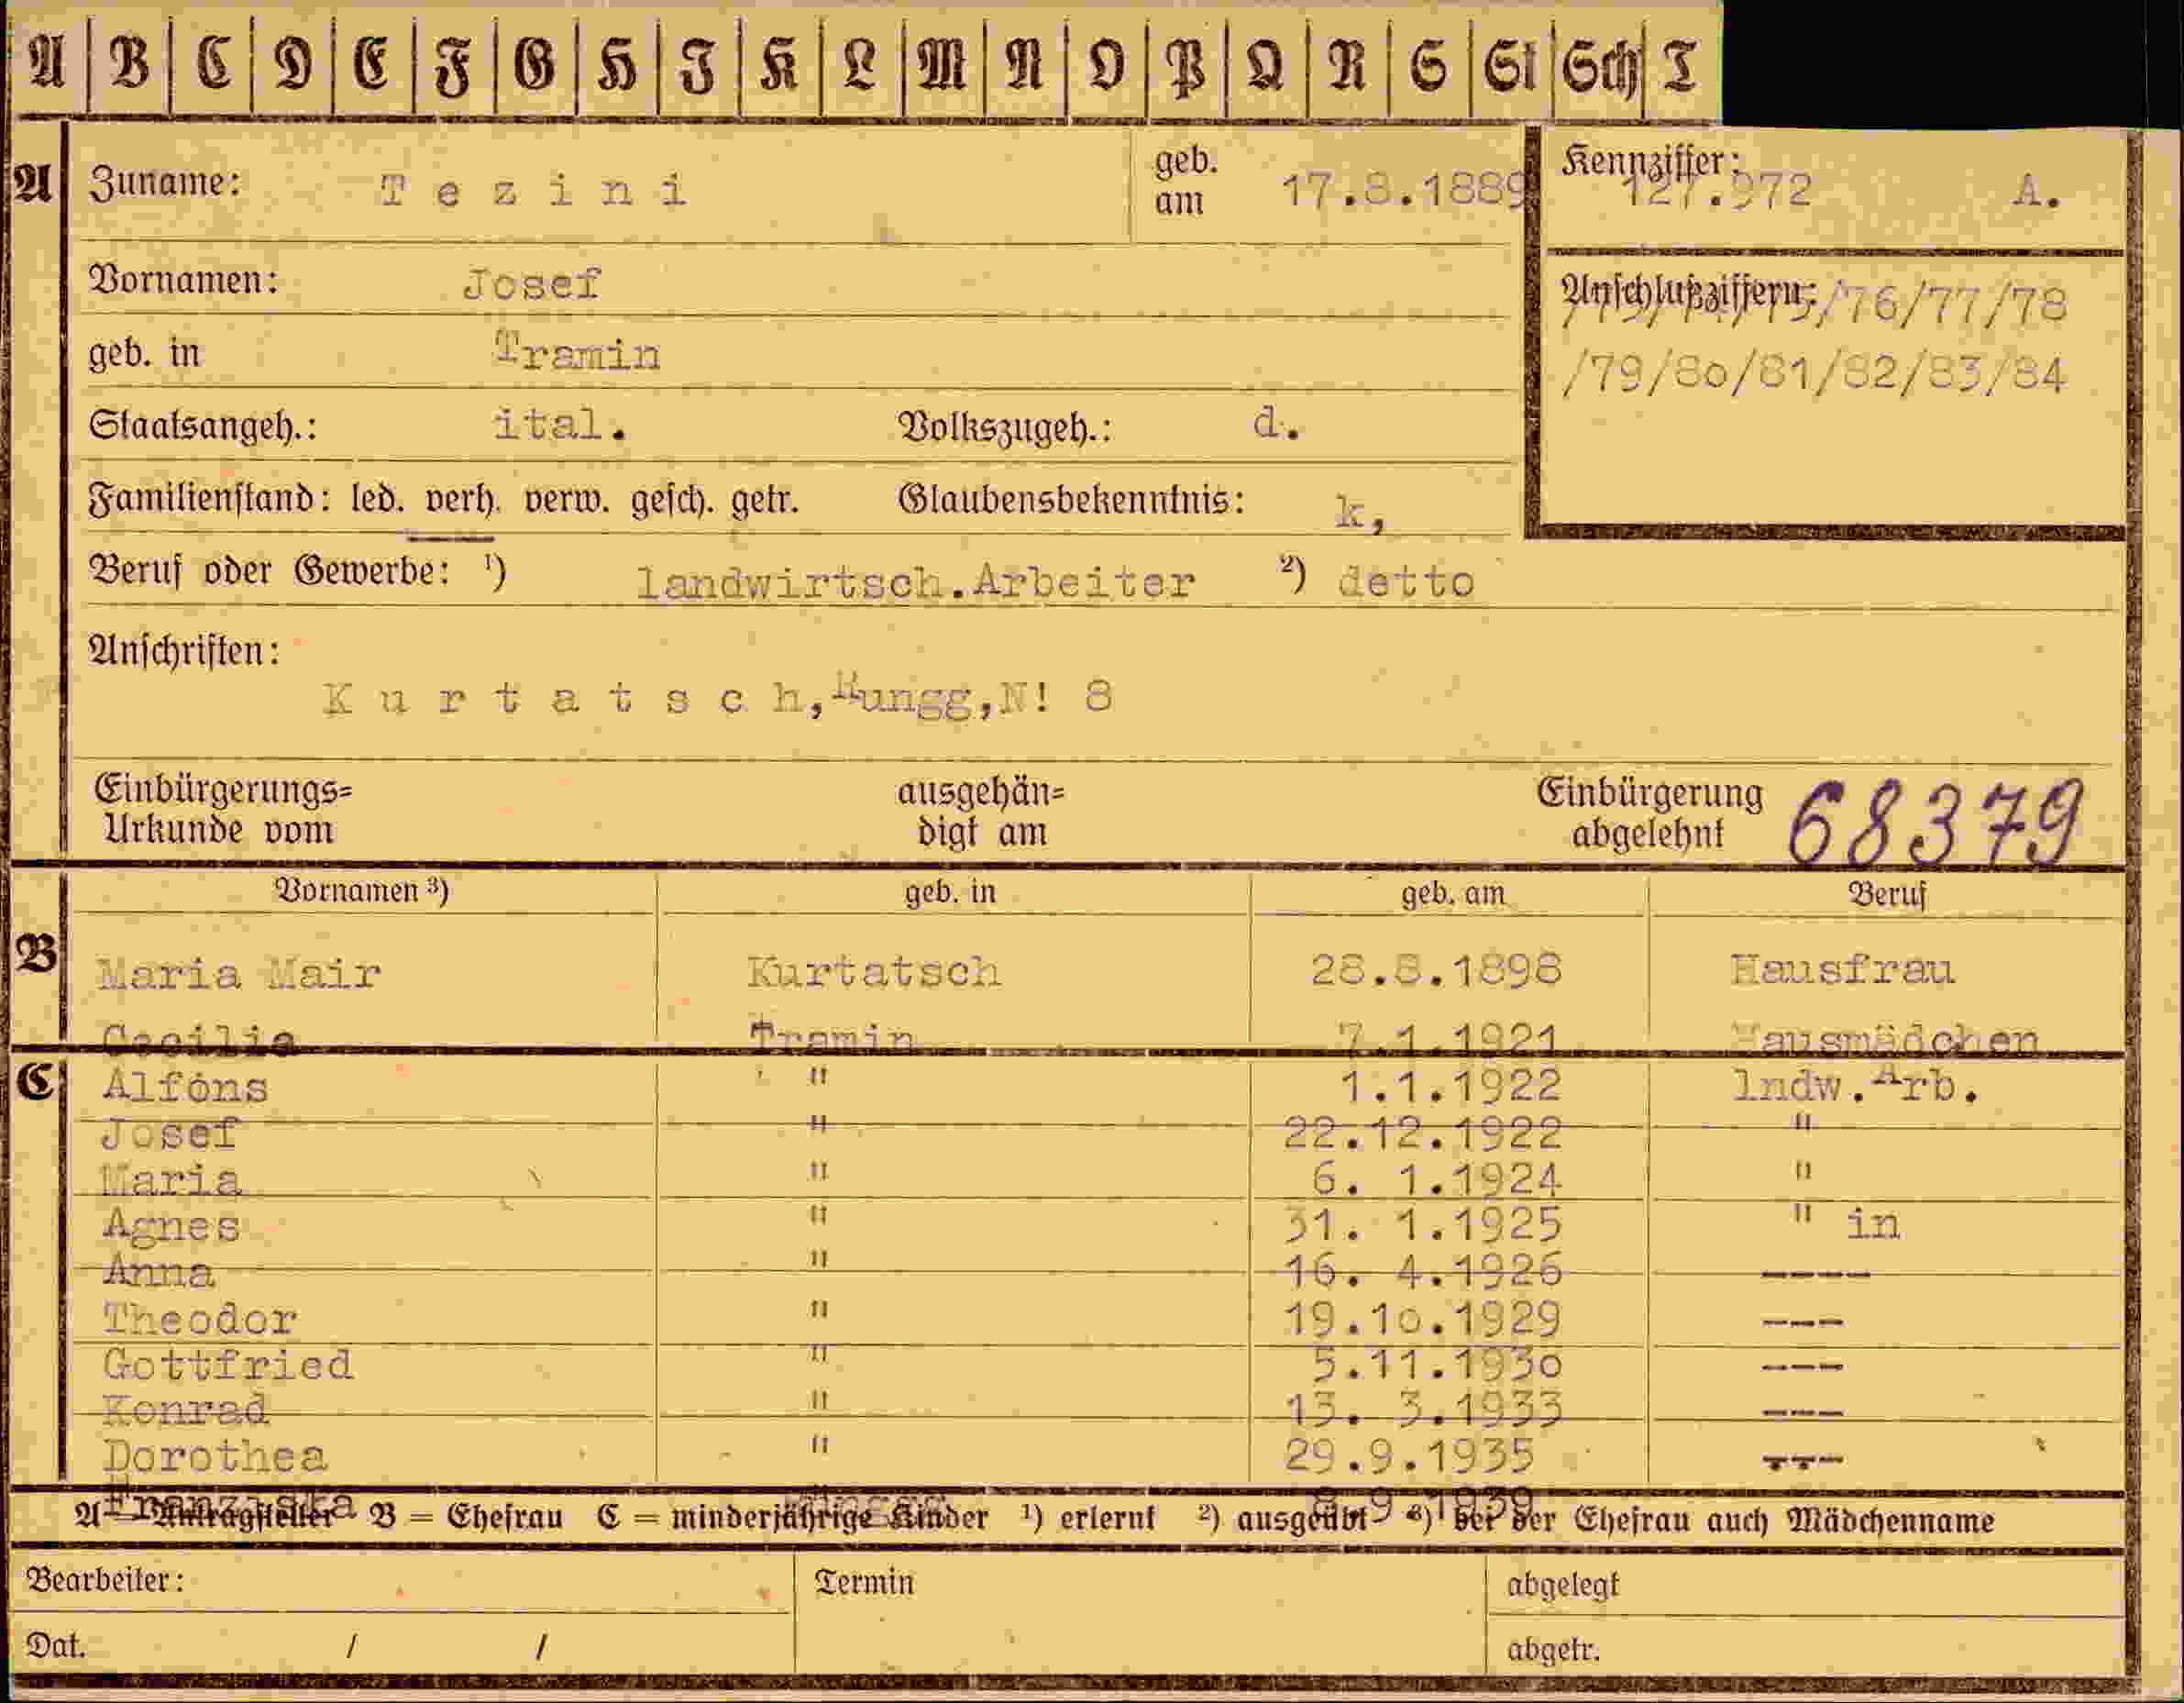 A B C D E F G H I K L M N O P Q R S St Sch T
A Zuname: Tezini geb. am 17.8.1889 Kennziffer: 127.972 A.
Vornamen: Josef Anschlußziffern: /76/77/78
geb. in Tramin /79/80/81/82/83/84
Staatsangeh.: ital. Volkszugeh.: d.
Familienstand: led. verh. verw. gesch. getr. Glaubensbekenntnis: k,
Beruf oder Gewerbe: ¹) landwirtsch.Arbeiter ²) detto
Anschriften:
Kurtatsch,Rungg,N! 8
Einbürgerungs= ausgehän= Einbürgerung 68379
Urkunde vom digt am abgelehnt
Vornamen ³) geb. in geb. am Beruf
B Maria Mair Kurtatsch 28.8.1898 Hausfrau
Cecilia Tramin 7.1.1921 Hausmädchen
C Alfons " 1.1.1922 lndw.Arb.
Josef " 22.12.1922 "
Maria " 6. 1.1924 "
Agnes " 31. 1.1925 " in
Anna " 16. 4.1926 ----
Theodor " 19.10.1929 ---
Gottfried " 5.11.1930 ---
Konrad " 13. 3.1933 ---
Dorothea " 29.9.1935 ---
Franziska 9.1939
A = Antragsteller B = Ehefrau C = minderjährige Kinder ¹) erlernt ²) ausgeübt ³) bei der Ehefrau auch Mädchenname
Bearbeiter: Termin abgelegt
Dat. / / abgetr.